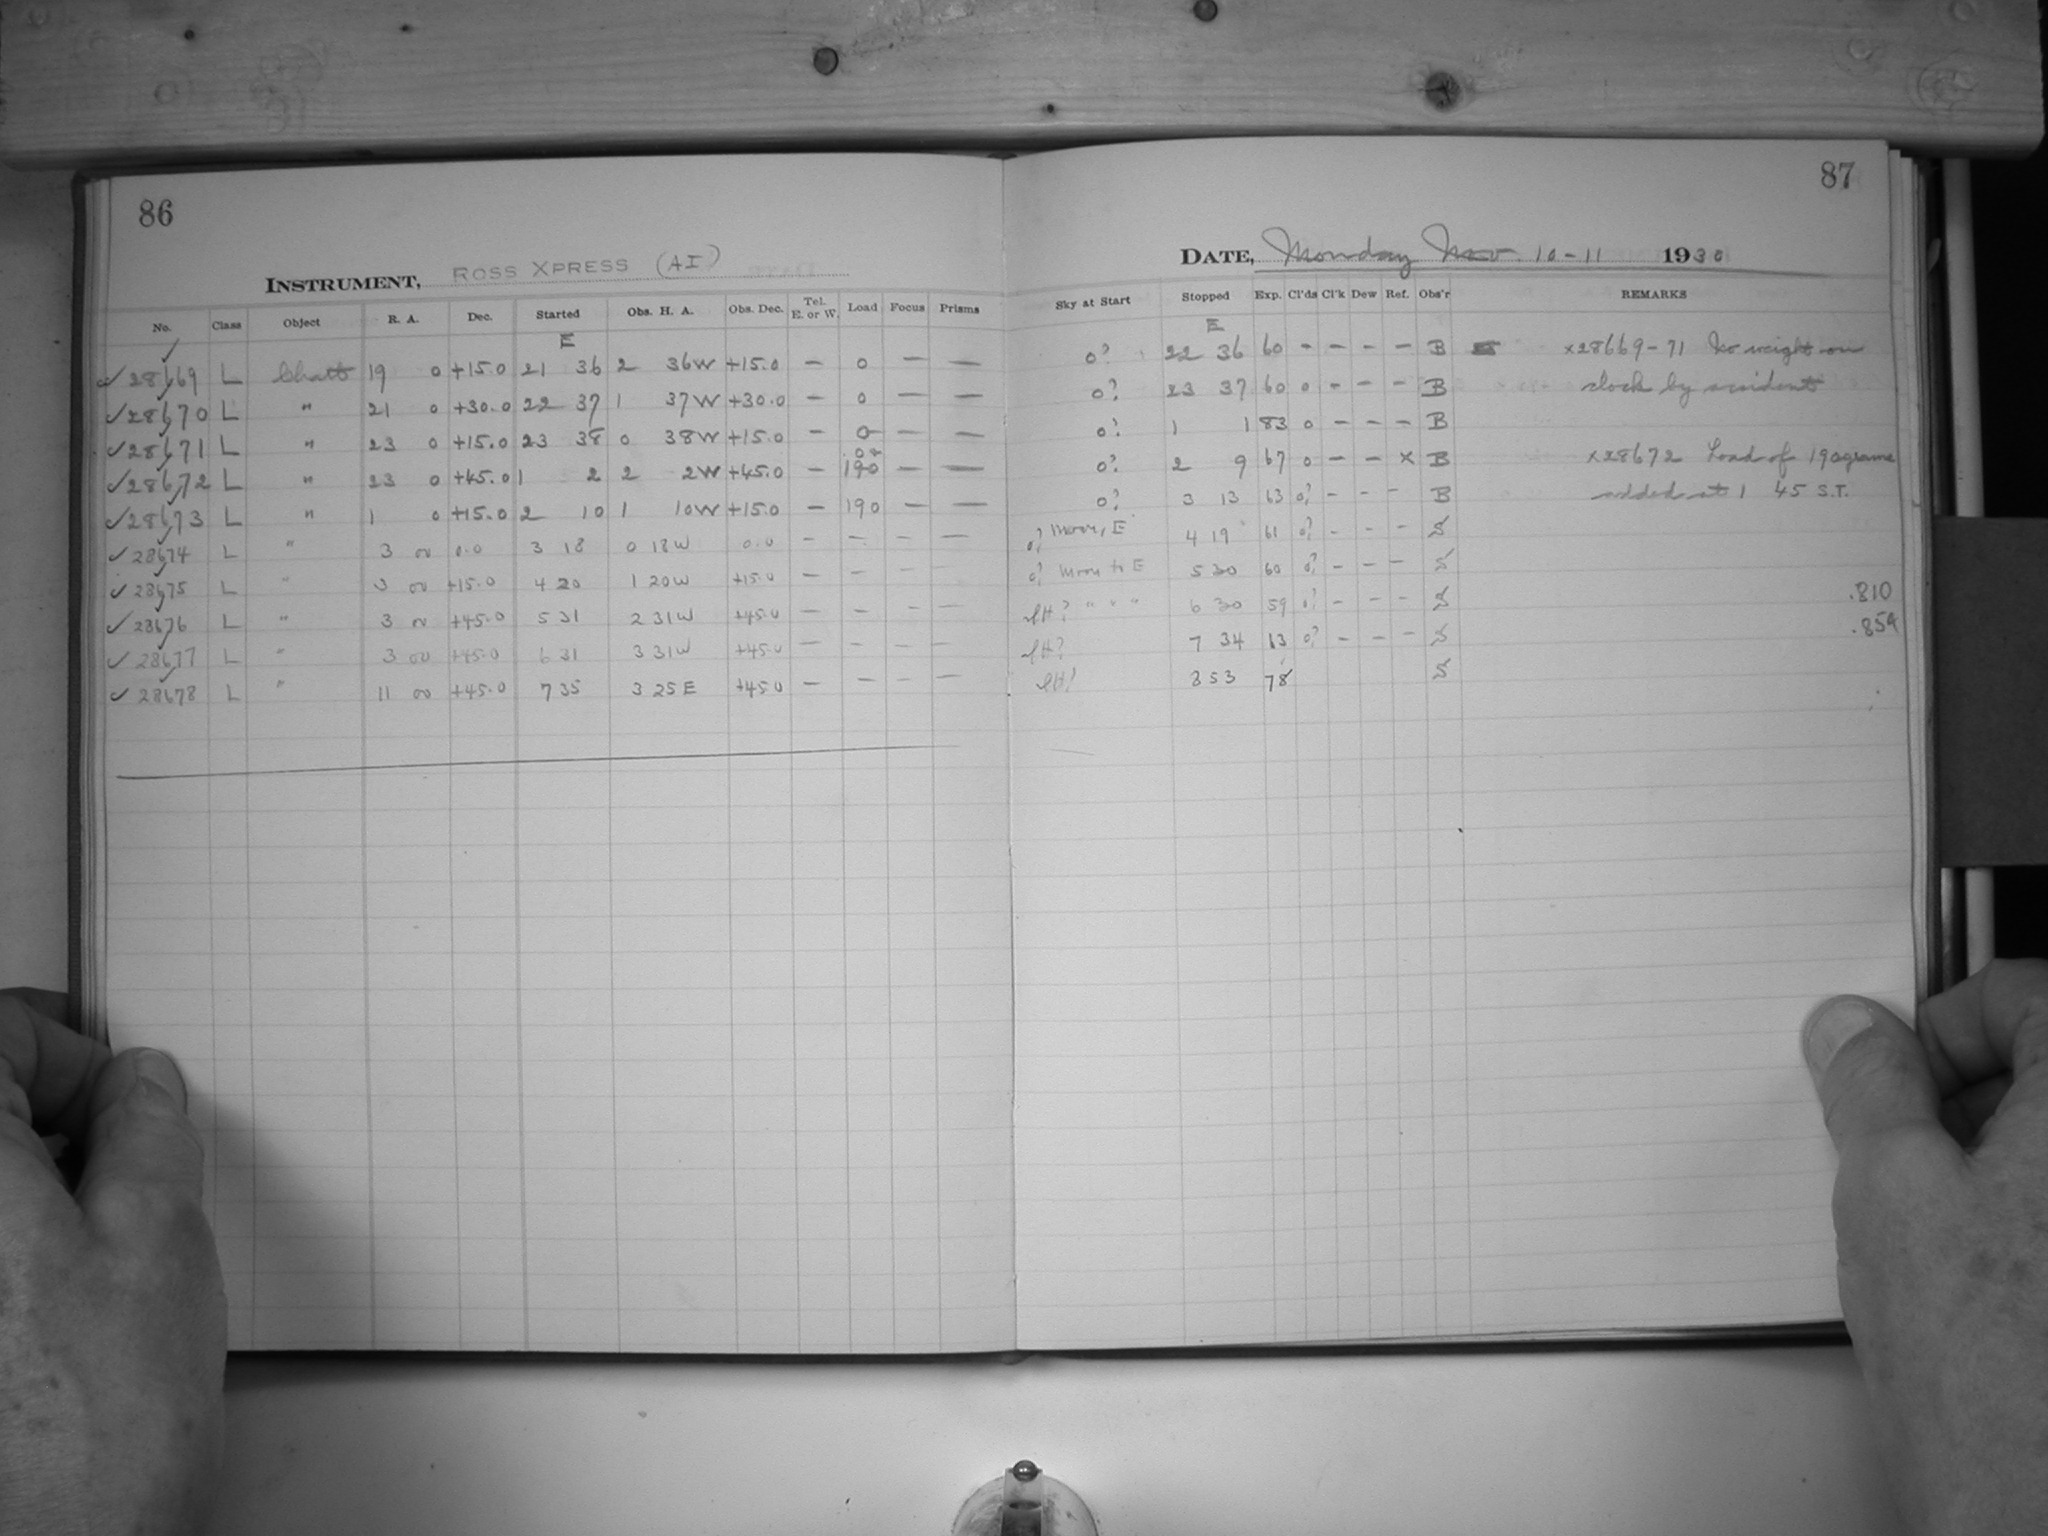 86
INSTRUMENT, ROSS XPRESS (AI)
No. Class Object R. A. Dec. Started Obs. H. A. Obs. Dec. Tel. E. or W. Load Focus Prisms
E
✓ 28669 L Chart 19 0 +15.0 21 36 2 36W +15.0 — 0 — —
✓ 28670 L " 21 0 +30.0 22 37 1 37W +30.0 — 0 — —
✓ 28671 L " 23 0 +15.0 23 38 0 38W +15.0 — 0 — —
✓ 28672 L " 23 0 +45.0 1 2 2 2W +45.0 — 0x 190 — —
✓ 28673 L " 1 0 +15.0 2 10 1 10W +15.0 — 190 — —
✓ 28674 L " 3 00 0.0 3 18 0 18W 0.0 — — — —
✓ 28675 L " 3 00 +15.0 4 20 1 20W +15.0 — — — —
✓ 28676 L " 3 00 +45.0 5 31 2 31W +45.0 — — — —
✓ 28677 L " 3 00 +45.0 6 31 3 31W +45.0 — — — —
✓ 28678 L " 11 00 +45.0 7 35 3 25E +45.0 — — — —
87
DATE, Monday Nov. 10-11 1930
Sky at Start Stopped Exp. Cl'ds Cl'k Dew Ref. Obs'r REMARKS
E
0? 22 36 60 - - - - B x28669-71 No weight on
0? 23 37 60 0 - - - B clock by accident
0? 1 1 83 0 - - - B
0? 2 9 67 0 - - x B x28672 Load of 190 grams
0? 3 13 63 0? - - - B added at 1 45 S.T.
0? Moon, E 4 19 61 0? - - - S
0? Moon to E 5 30 60 0? - - - S
IH? " " " 6 30 59 0? - - - S .810
IH? 7 34 63 0? - - - S .859
IH? 8 53 78 S